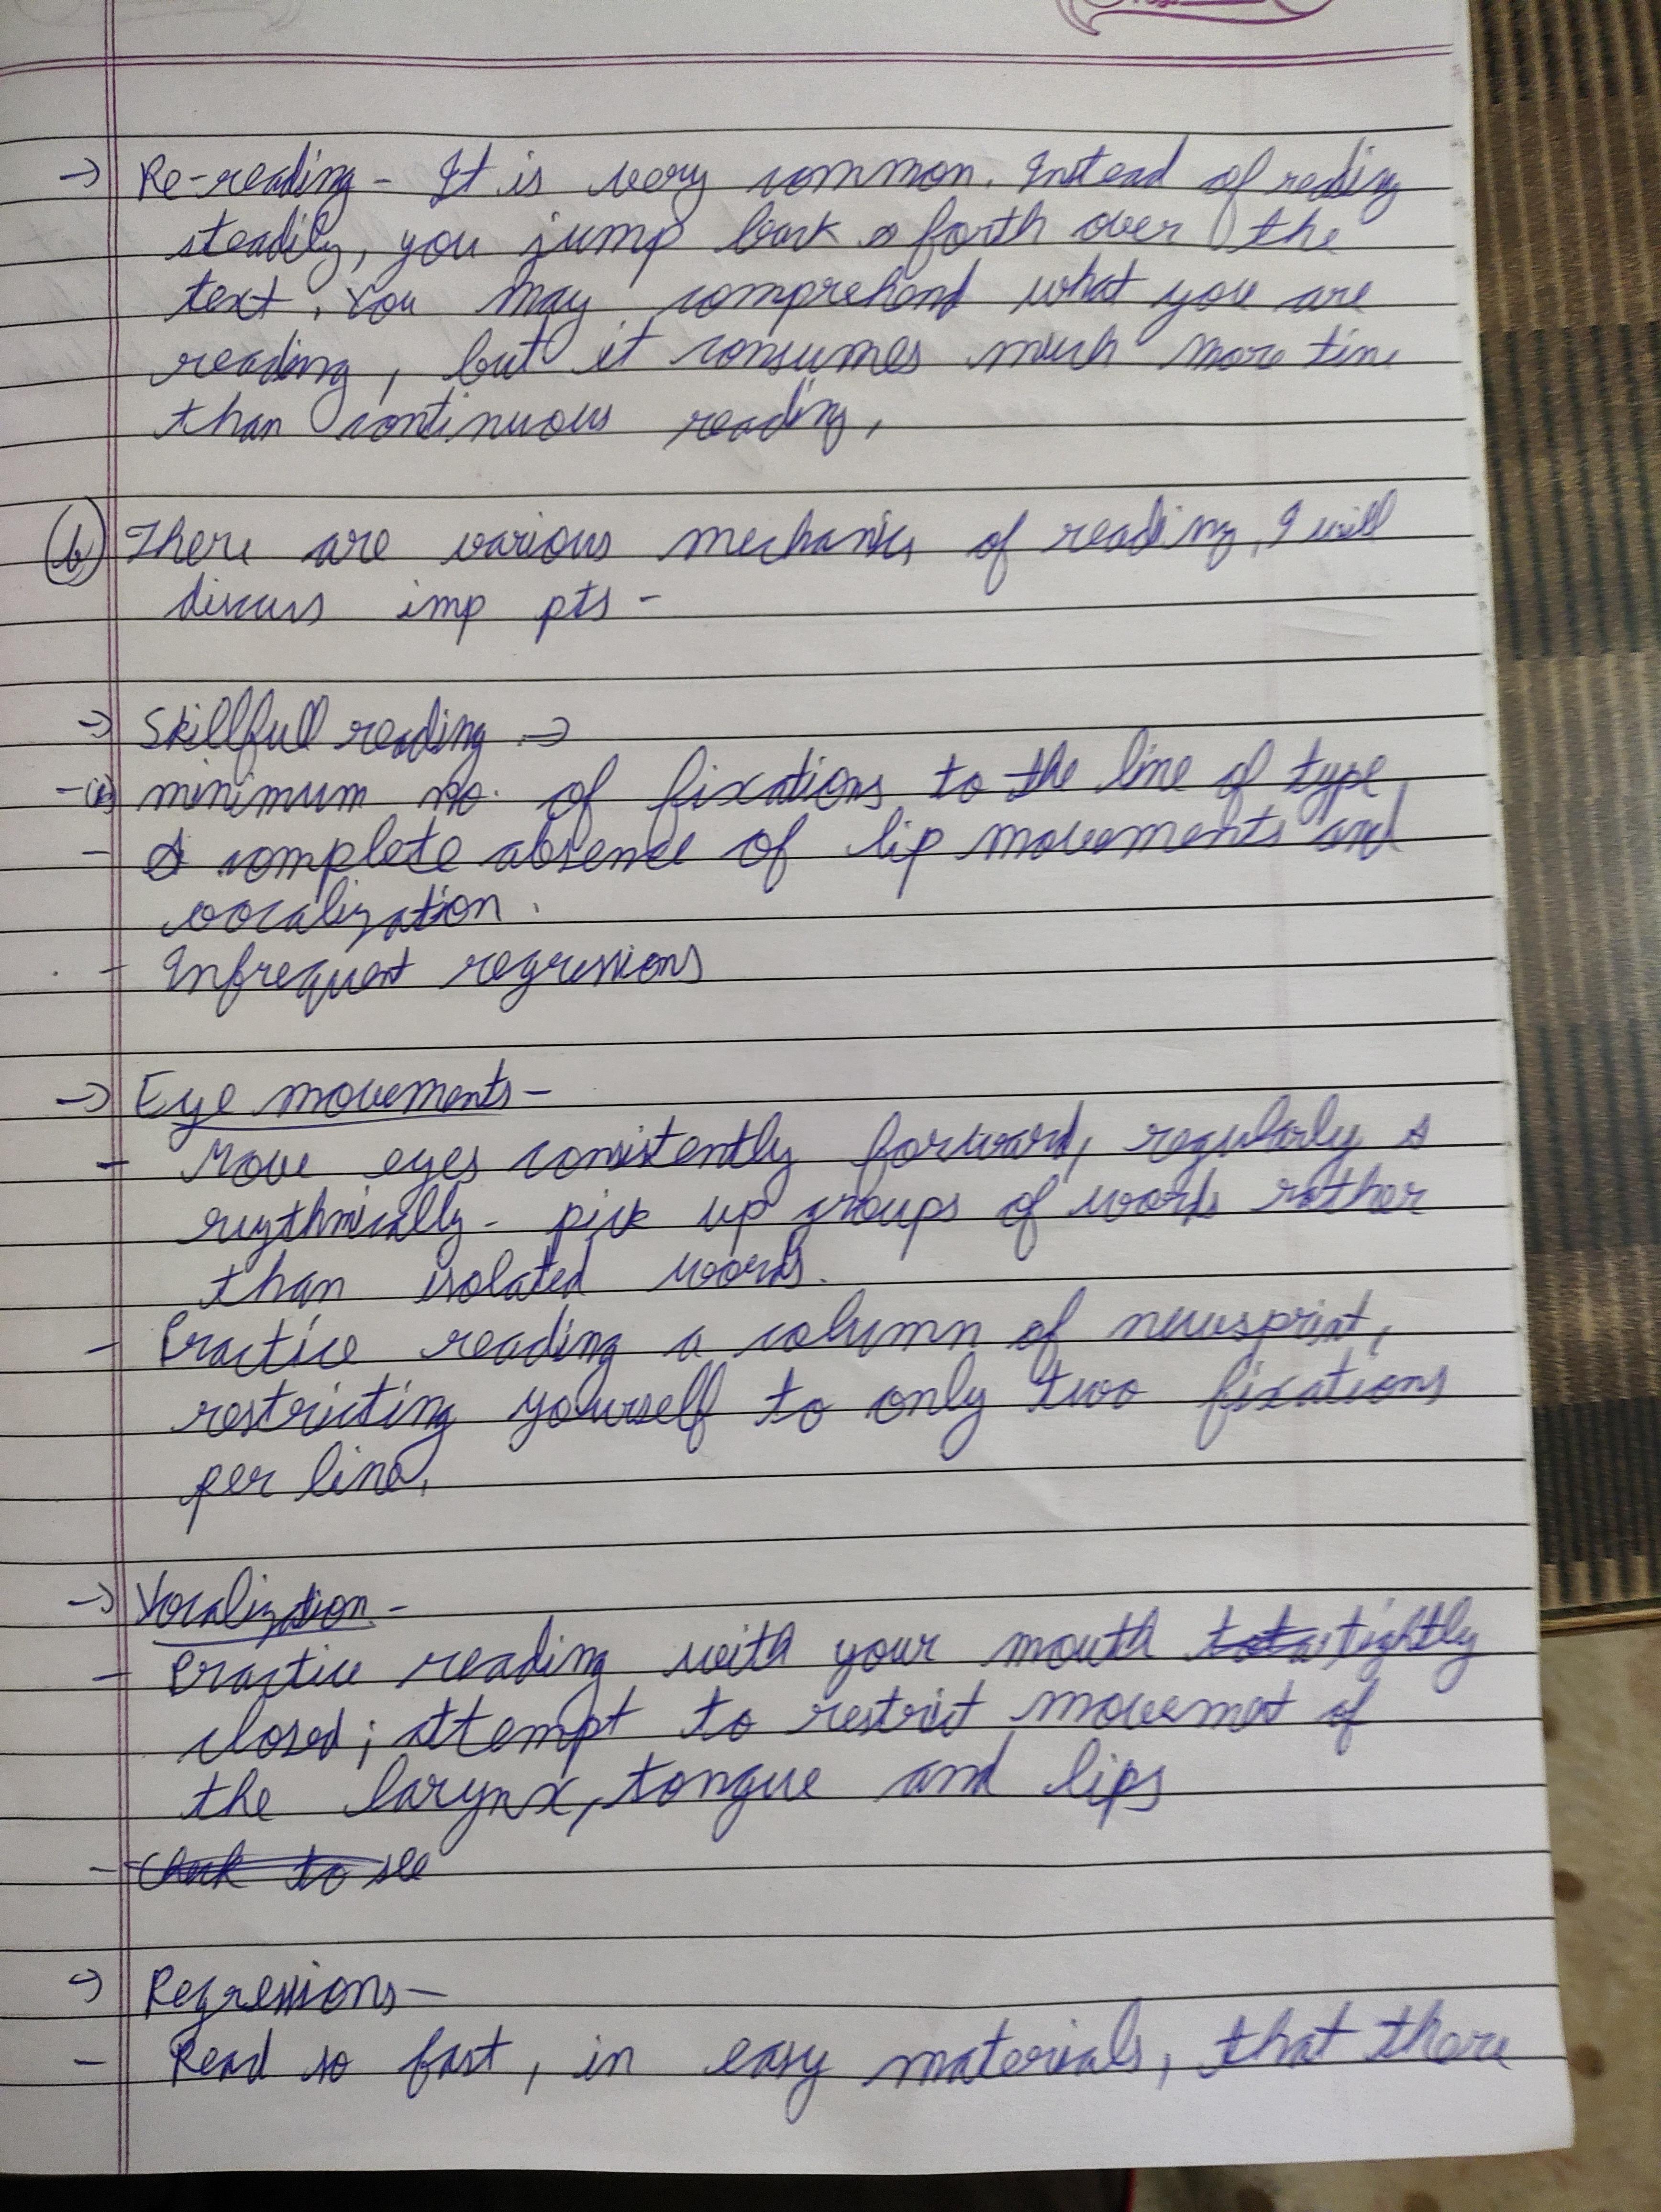 → Re-reading - It is very common. Instead of reading
steadily, you jump back & forth over the
text. You may comprehend what you are
reading, but it consumes much more time
than continuous reading.
(b) There are various mechanics of reading, I will
discuss imp pts -
→ Skillfull reading →
- minimum no. of fixations to the line of type
- complete absence of lip movements and
vocalization.
- Infrequent regressions
→ Eye movements -
- Move eyes consistently forward, regularly &
rugthmically - pick up groups of words rather
than isolated words.
- Practice reading a column of newsprint,
restricting yourself to only two fixations
per line.
→ Vocalization -
- Practice reading with your mouth tightly
closed; attempt to restrict movemet of
the larynx, tongue and lips
- Check to see
→ Regressions -
- Read so fast, in easy materials, that there